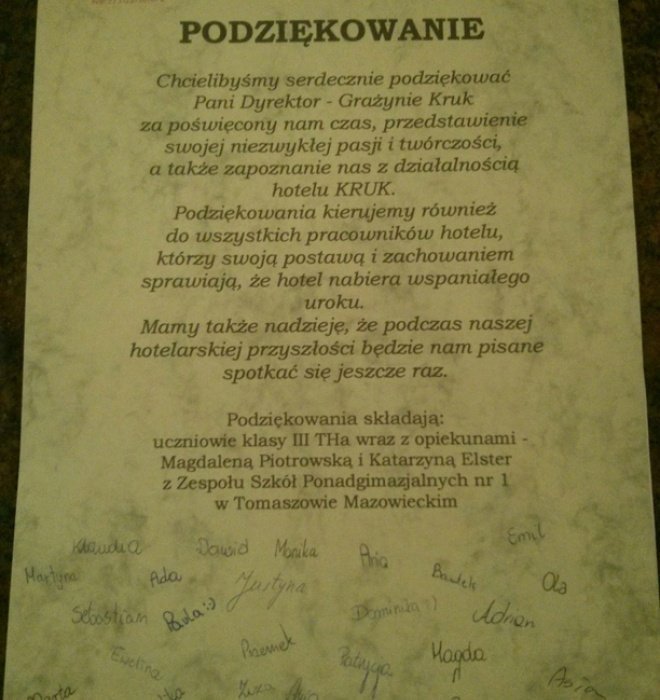 PODZIĘKOWANIE
Chcielibyśmy serdecznie podziękować
Pani Dyrektor - Grażynie Kruk
za poświęcony nam czas, przedstawienie
swojej niezwykłej pasji i twórczości,
a także zapoznanie nas z działalnością
hotelu KRUK.
Podziękowania kierujemy również
do wszystkich pracowników hotelu,
którzy swoją postawą i zachowaniem
sprawiają, że hotel nabiera wspaniałego
uroku.
Mamy także nadzieję, że podczas naszej
hotelarskiej przyszłości będzie nam pisane
spotkać się jeszcze raz.
Podziękowania składają:
uczniowie klasy III THa wraz z opiekunami -
Magdaleną Piotrowską i Katarzyną Elster
z Zespołu Szkół Ponadgimazjalnych nr 1
w Tomaszowie Mazowieckim
Klaudia Dawid Monika Ania Emil
Martyna Ada Justyna Bartek Ola
Sebastian Paula:) Dominika:) Adrian
Ewelina Przemek Patrycja Magda
Zuza Asia